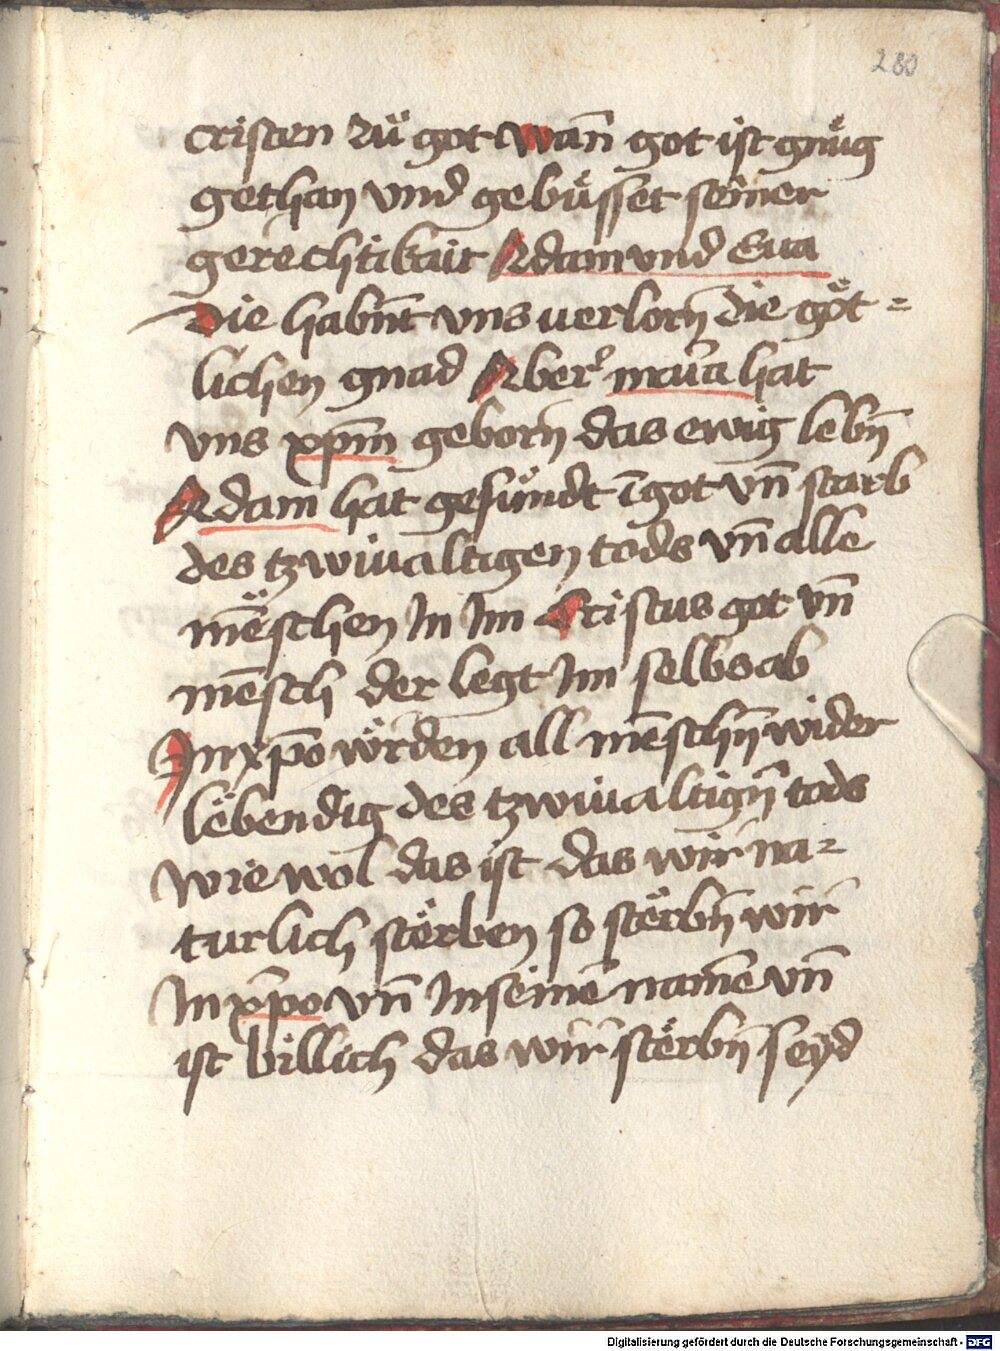 280
cristen zů got wan̄ got ist gnůg
gethan vnd gebüsset seiner
gerechtikait Adam vnd Eua
Die habnt̄ vns uerlorn̄ die göt=
lichen gnad Aber maria hat
vns xp̄m geborn̄ das ewig lebn̄
Adam hat gesündt ī got vn̄ starb
des tzwiualtigen tods vn̄ alle
mēschen In Im Cristus got vn̄
mēsch der legt Im selbs ab
In xp̄o wörden all mēschn̄ wider
lebendig des tzwiualtign̄ tods
wie wol das ist das wir na=
turlich stërben so stërbn̄ wir
In xp̄o vn̄ In seinē namē vn̄
ist billich das wir stërbn̄ seyd
Digitalisierung gefördert durch die Deutsche Forschungsgemeinschaft - DFG